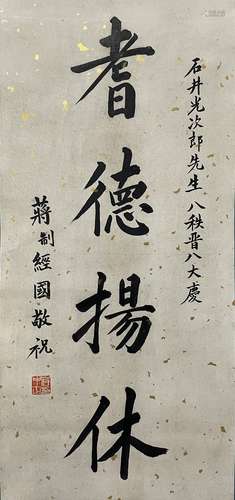 石井光次郎先生 八秩晋八大慶
耆德揚休
蔣制經國敬祝